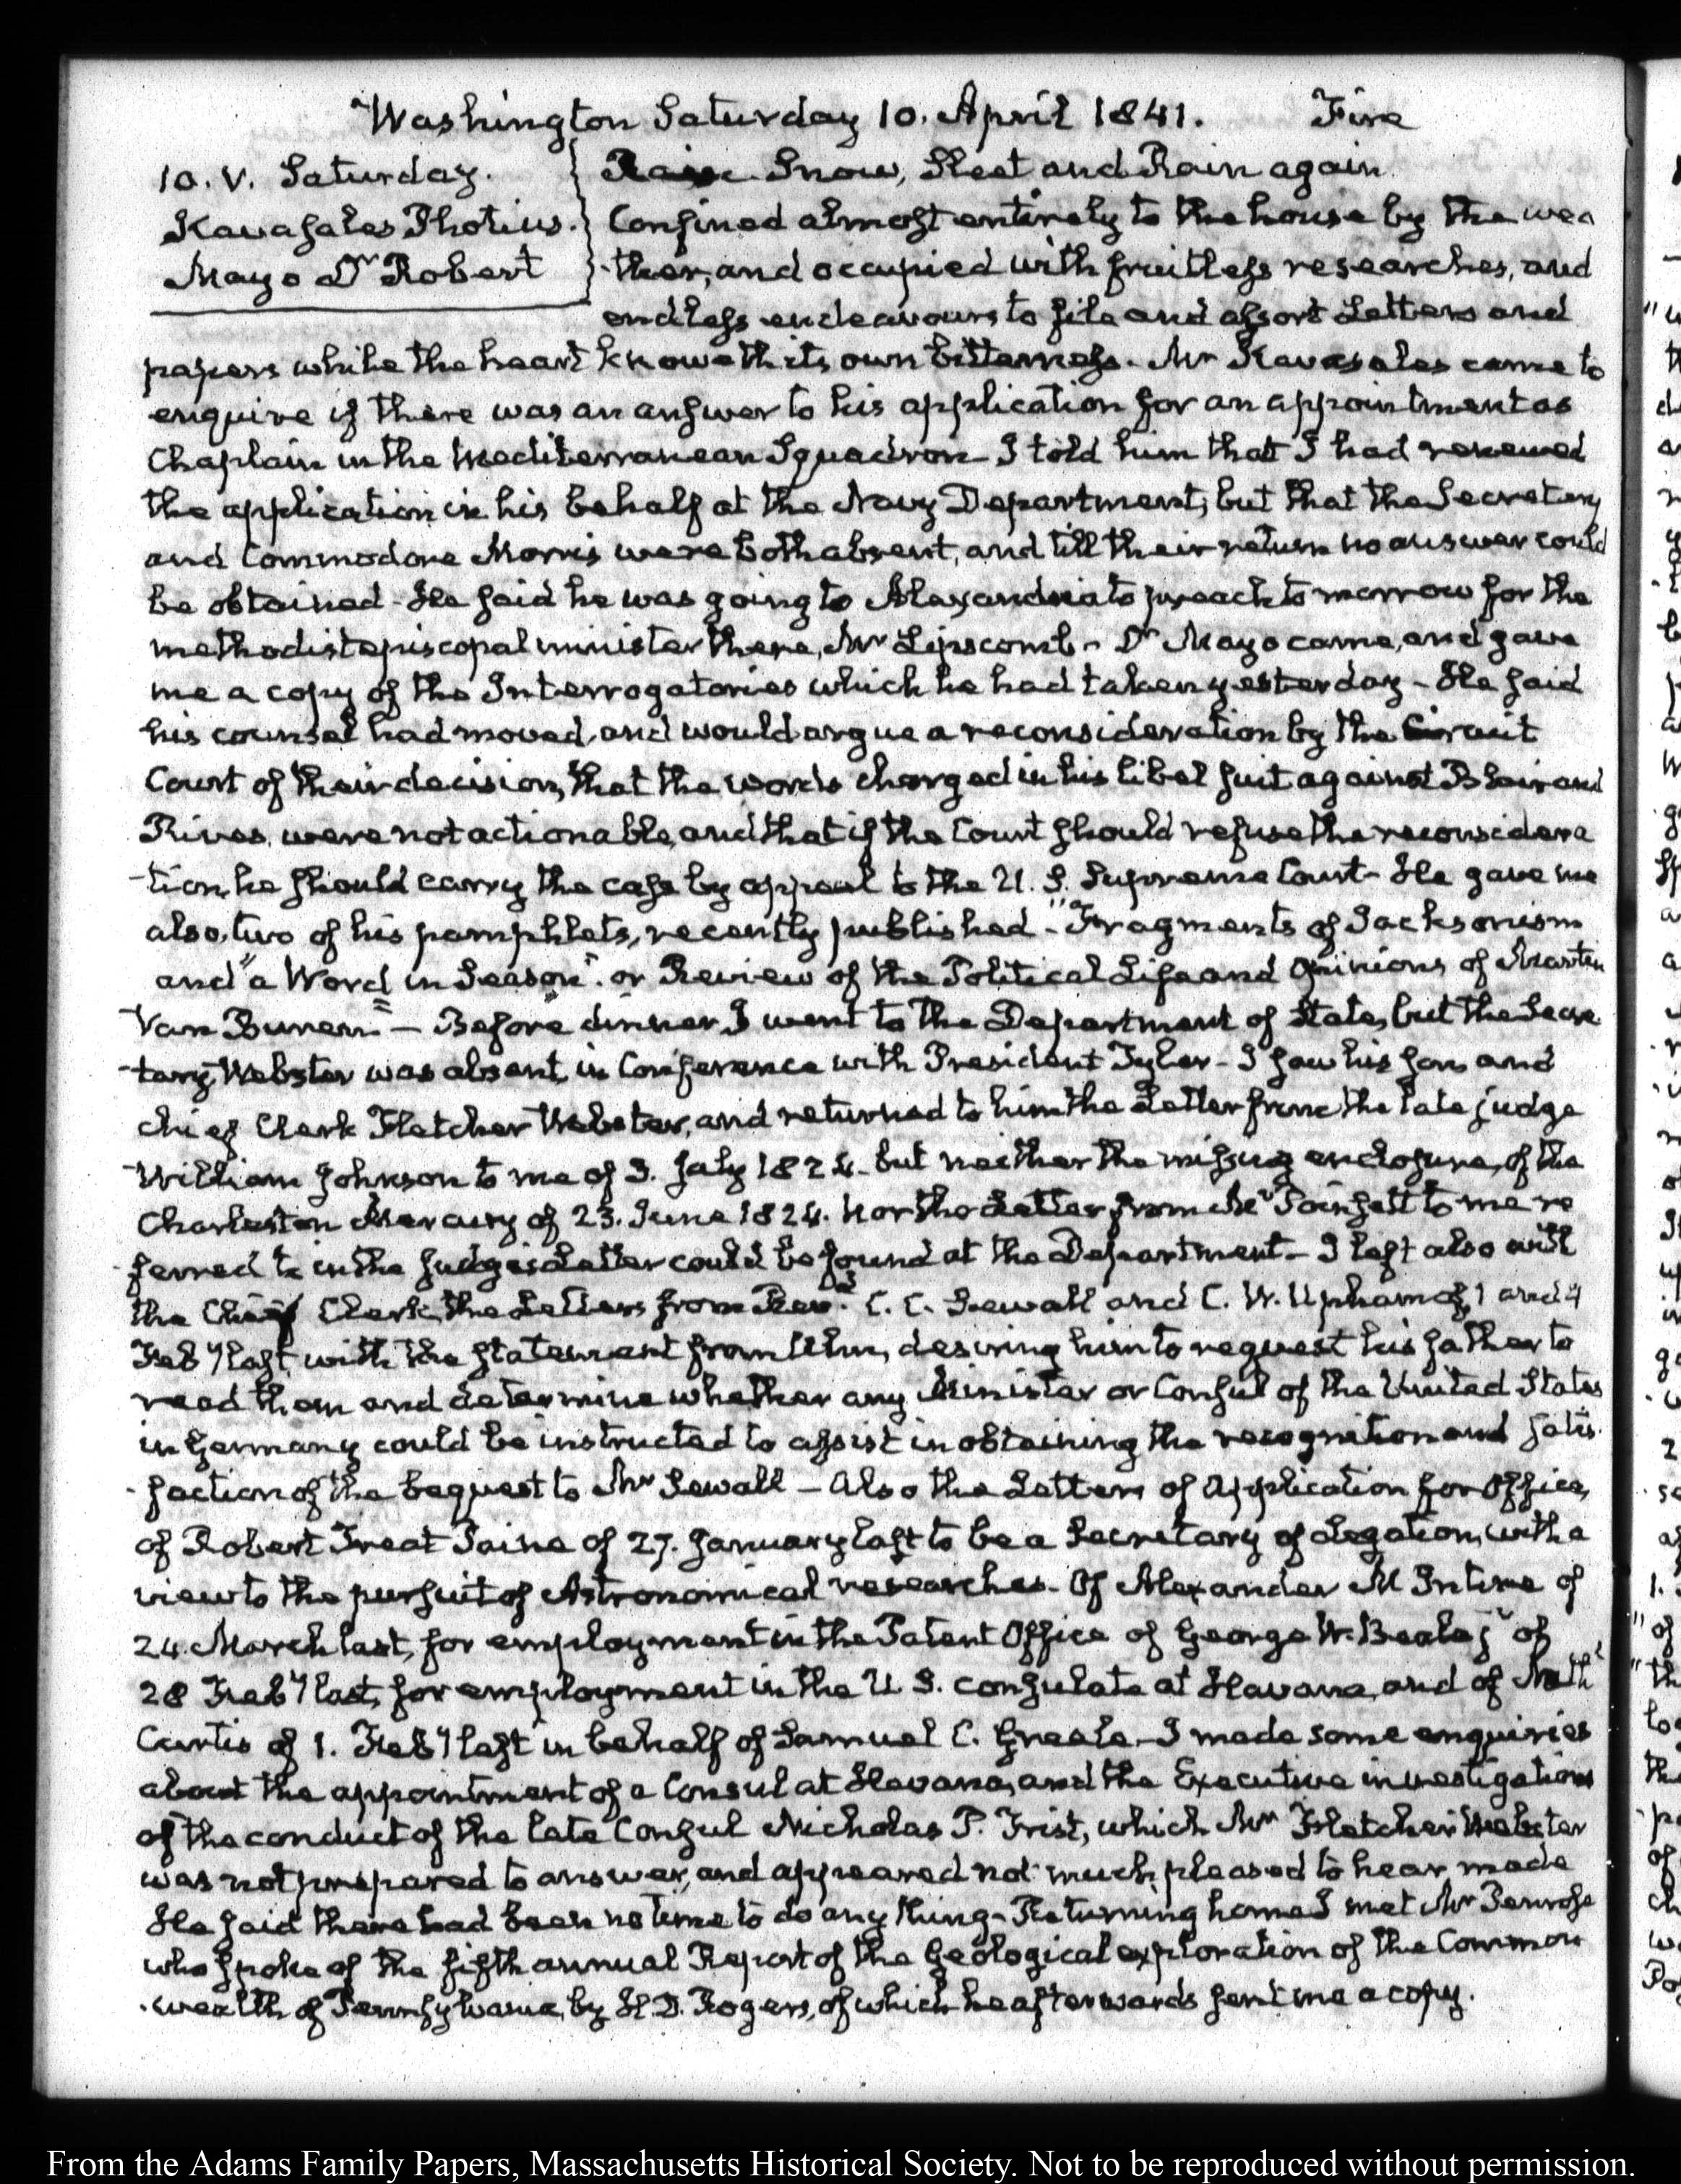 Washington Saturday 10. April 1841. Fire
10. V. Saturday.
Kavasales Photius.
Mayo Dr Robert
Rain. Snow, Sleet and Rain again
Confined almost entirely to the house by the wea
ther, and occupied with fruitless researches, and
endless endeavours to file and assort Letters and
papers while the heart knoweth its own bitterness. Mr Kavasales came to
enquire if there was an answer to his application for an appointment as
Chaplain in the Mediterranean Squadron I told him that I had renewed
the application in his behalf at the Navy Department; but that the Secretary
and Commodore Morris were both absent, and till their return no answer could
be obtained - He said he was going to Alexandria to preach to morrow for the
methodist episcopal minister there, Mr Lipscomb - Dr Mayo came, and gave
me a copy of the Interrogatories which he had taken yesterday - He said
his counsel had moved, and would argue a reconsideration by the Circuit
Court of their decision, that the words charged in his libel suit against Blair and
Rives, were not actionable, and that if the Court should refuse the reconsidera
-tion, he should carry the case by appeal to the U. S. Supreme Court - He gave me
also, two of his pamphlets, recently published - "Fragments of Jacksonism
and "a Word in Season". or Review of the Political Life and Opinions of Martin
Van Buren" - Before dinner I went to the Department of State, but the Secre
-tary Webster was absent, in Conference with President Tyler - I saw his son and
chief Clerk Fletcher Webster, and returned to him the Letter from the late judge
William Johnson to me of 3. July 1824. but neither the missing enclosure, of the
Charleston Mercury of 23. June 1824. nor the Letter from Mr Poinsett to me re
-ferred to in the Judge's Letter could be found at the Department - I left also with
the Chief Clerk, the Letters from Revd. C. C. Sewall and C. W. Upham of 1 and 4
Feby last, with the statement from Ulm, desiring him to request his father to
read them and determine whether any Minister or Consul of the United States
in Germany could be instructed to assist in obtaining the recognition and satis
-faction of the bequest to Mr Sewall - Also the Letters of Application for Office,
of Robert Treat Paine of 27. January last to be a Secretary of Legation, with a
view to the pursuit of Astronomical researches - Of Alexander M Intire of
24. March last, for employment in the Patent Office of George W. Beale jr of
28 Feby last, for employment in the U. S. consulate at Havana, and of Nathl
Curtis of 1. Feby last in behalf of Samuel C. Greele - I made some enquiries
about the appointment of a Consul at Havana, and the Executive investigations
of the conduct of the late Consul Nicholas P. Trist, which Mr Fletcher Webster
was not prepared to answer, and appeared not much pleased to hear made
He said there had been no time to do any thing - Returning home I met Mr Penrose
who spoke of the fifth annual Report of the Geological exploration of the Common
-wealth of Pennsylvania, by H. D. Rogers, of which he afterwards sent me a copy.
From the Adams Family Papers, Massachusetts Historical Society. Not to be reproduced without permission.